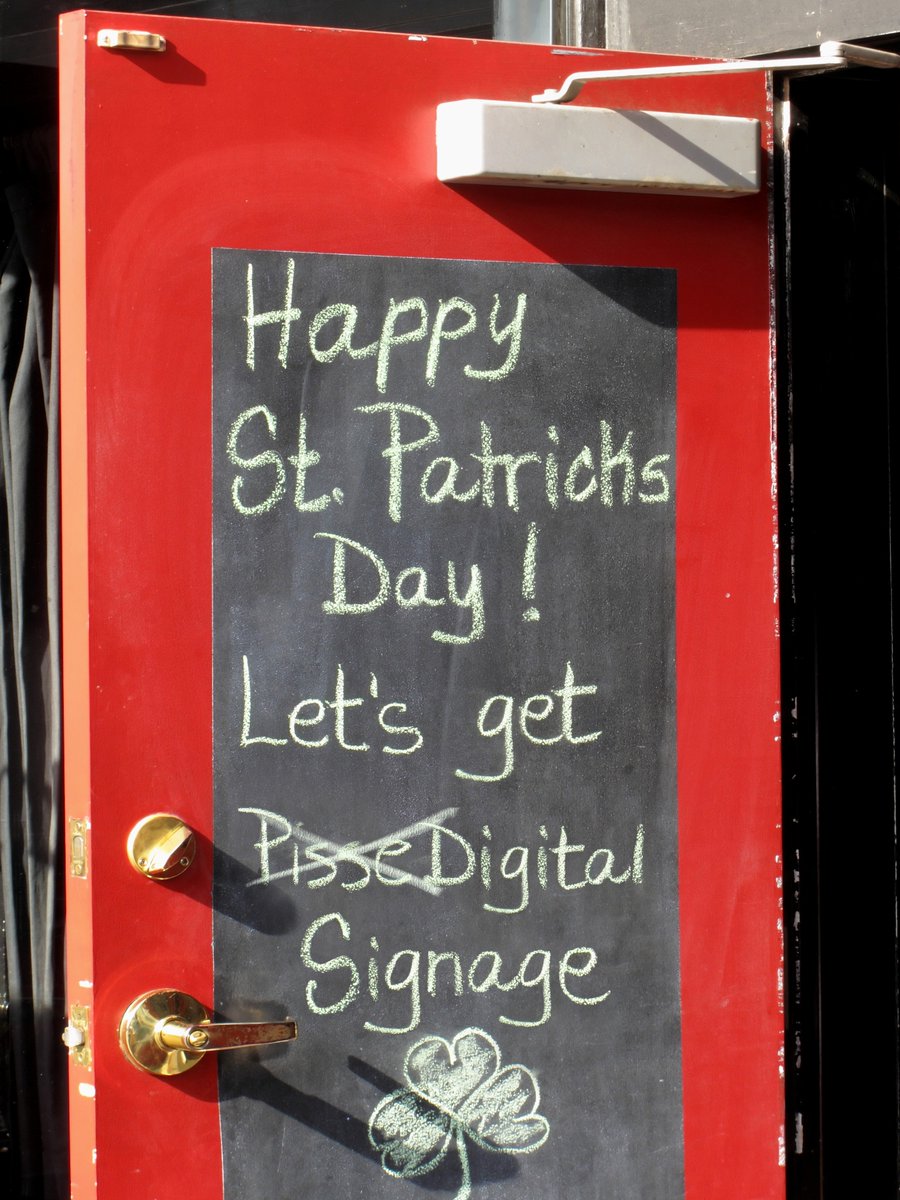 Happy
St. Patricks
Day!
Let's get
Pisse Digital
Signage